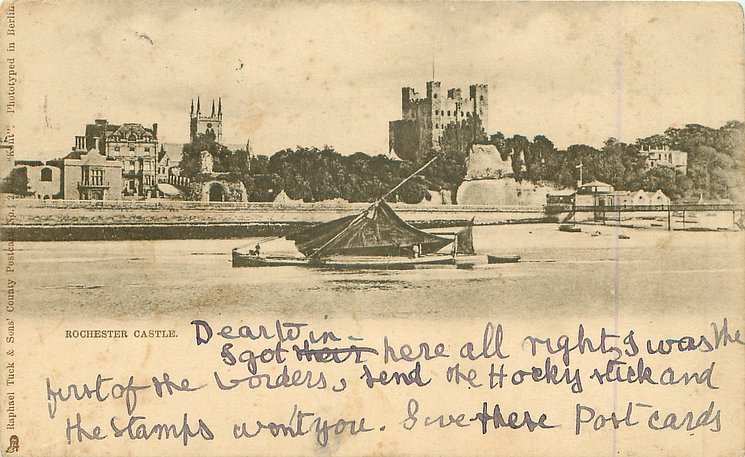 Raphael Tuck & Sons' County Postcard No. 2 "Kent". Phototyped in Berlin
ROCHESTER CASTLE.
Dear twin -
I got here all right, I was the
first of the borders, send the Hocky stick and
the Stamps won't you. I've these Post cards